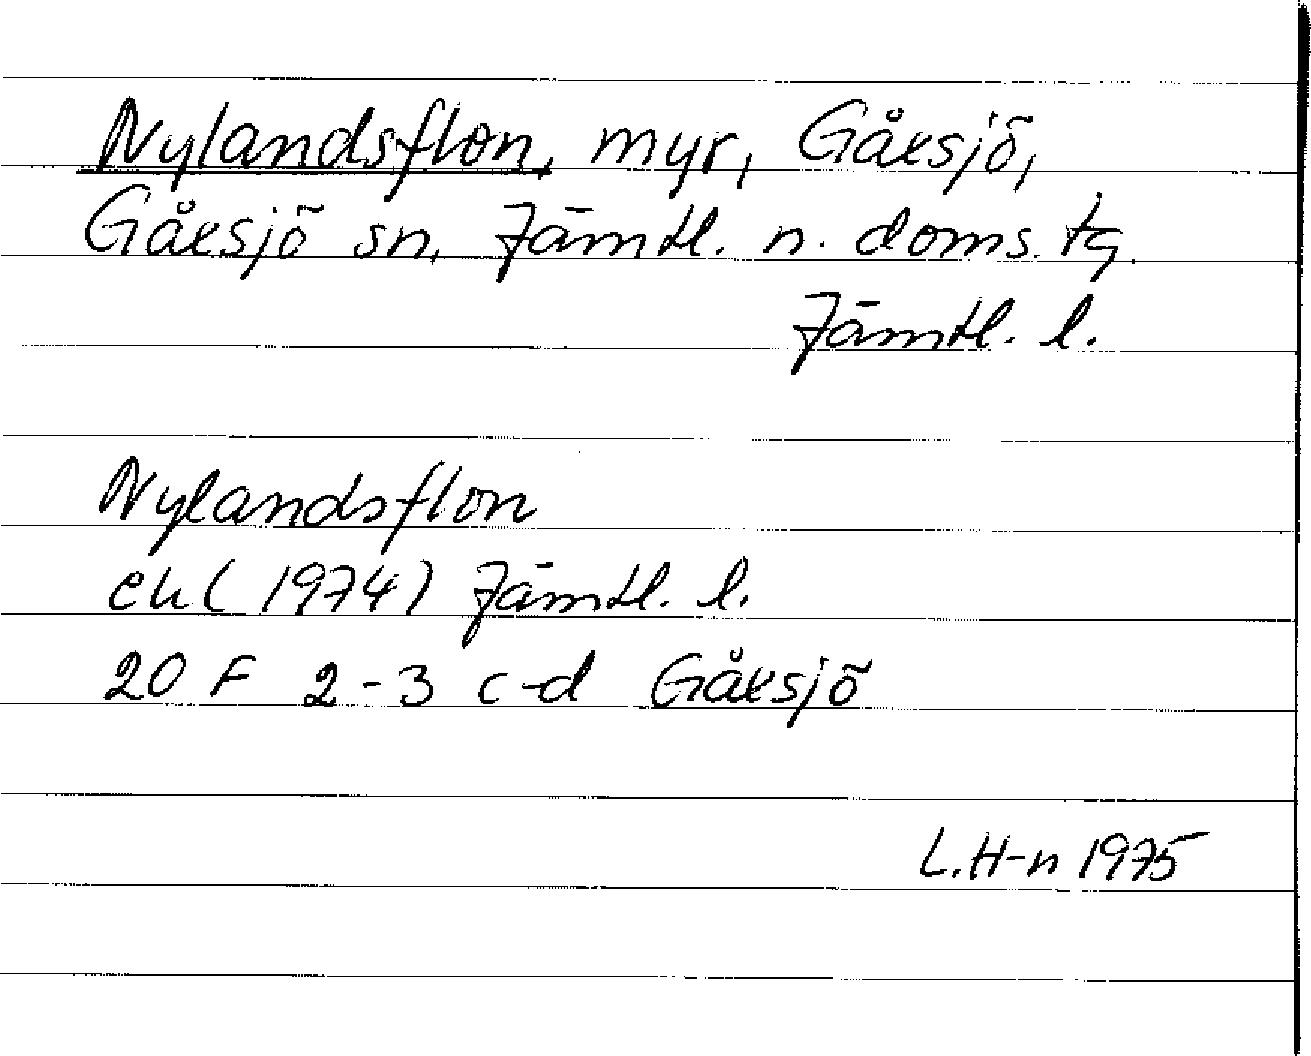 Nylandsflon, myr, Gåxsjö,
Gåxsjö sn, Jämtl. n. doms. tg.
Jämtl. l.
Nylandsflon
ek (1974) Jämtl. l.
20 F 2-3 c-d Gåxsjö
L.H-n 1975